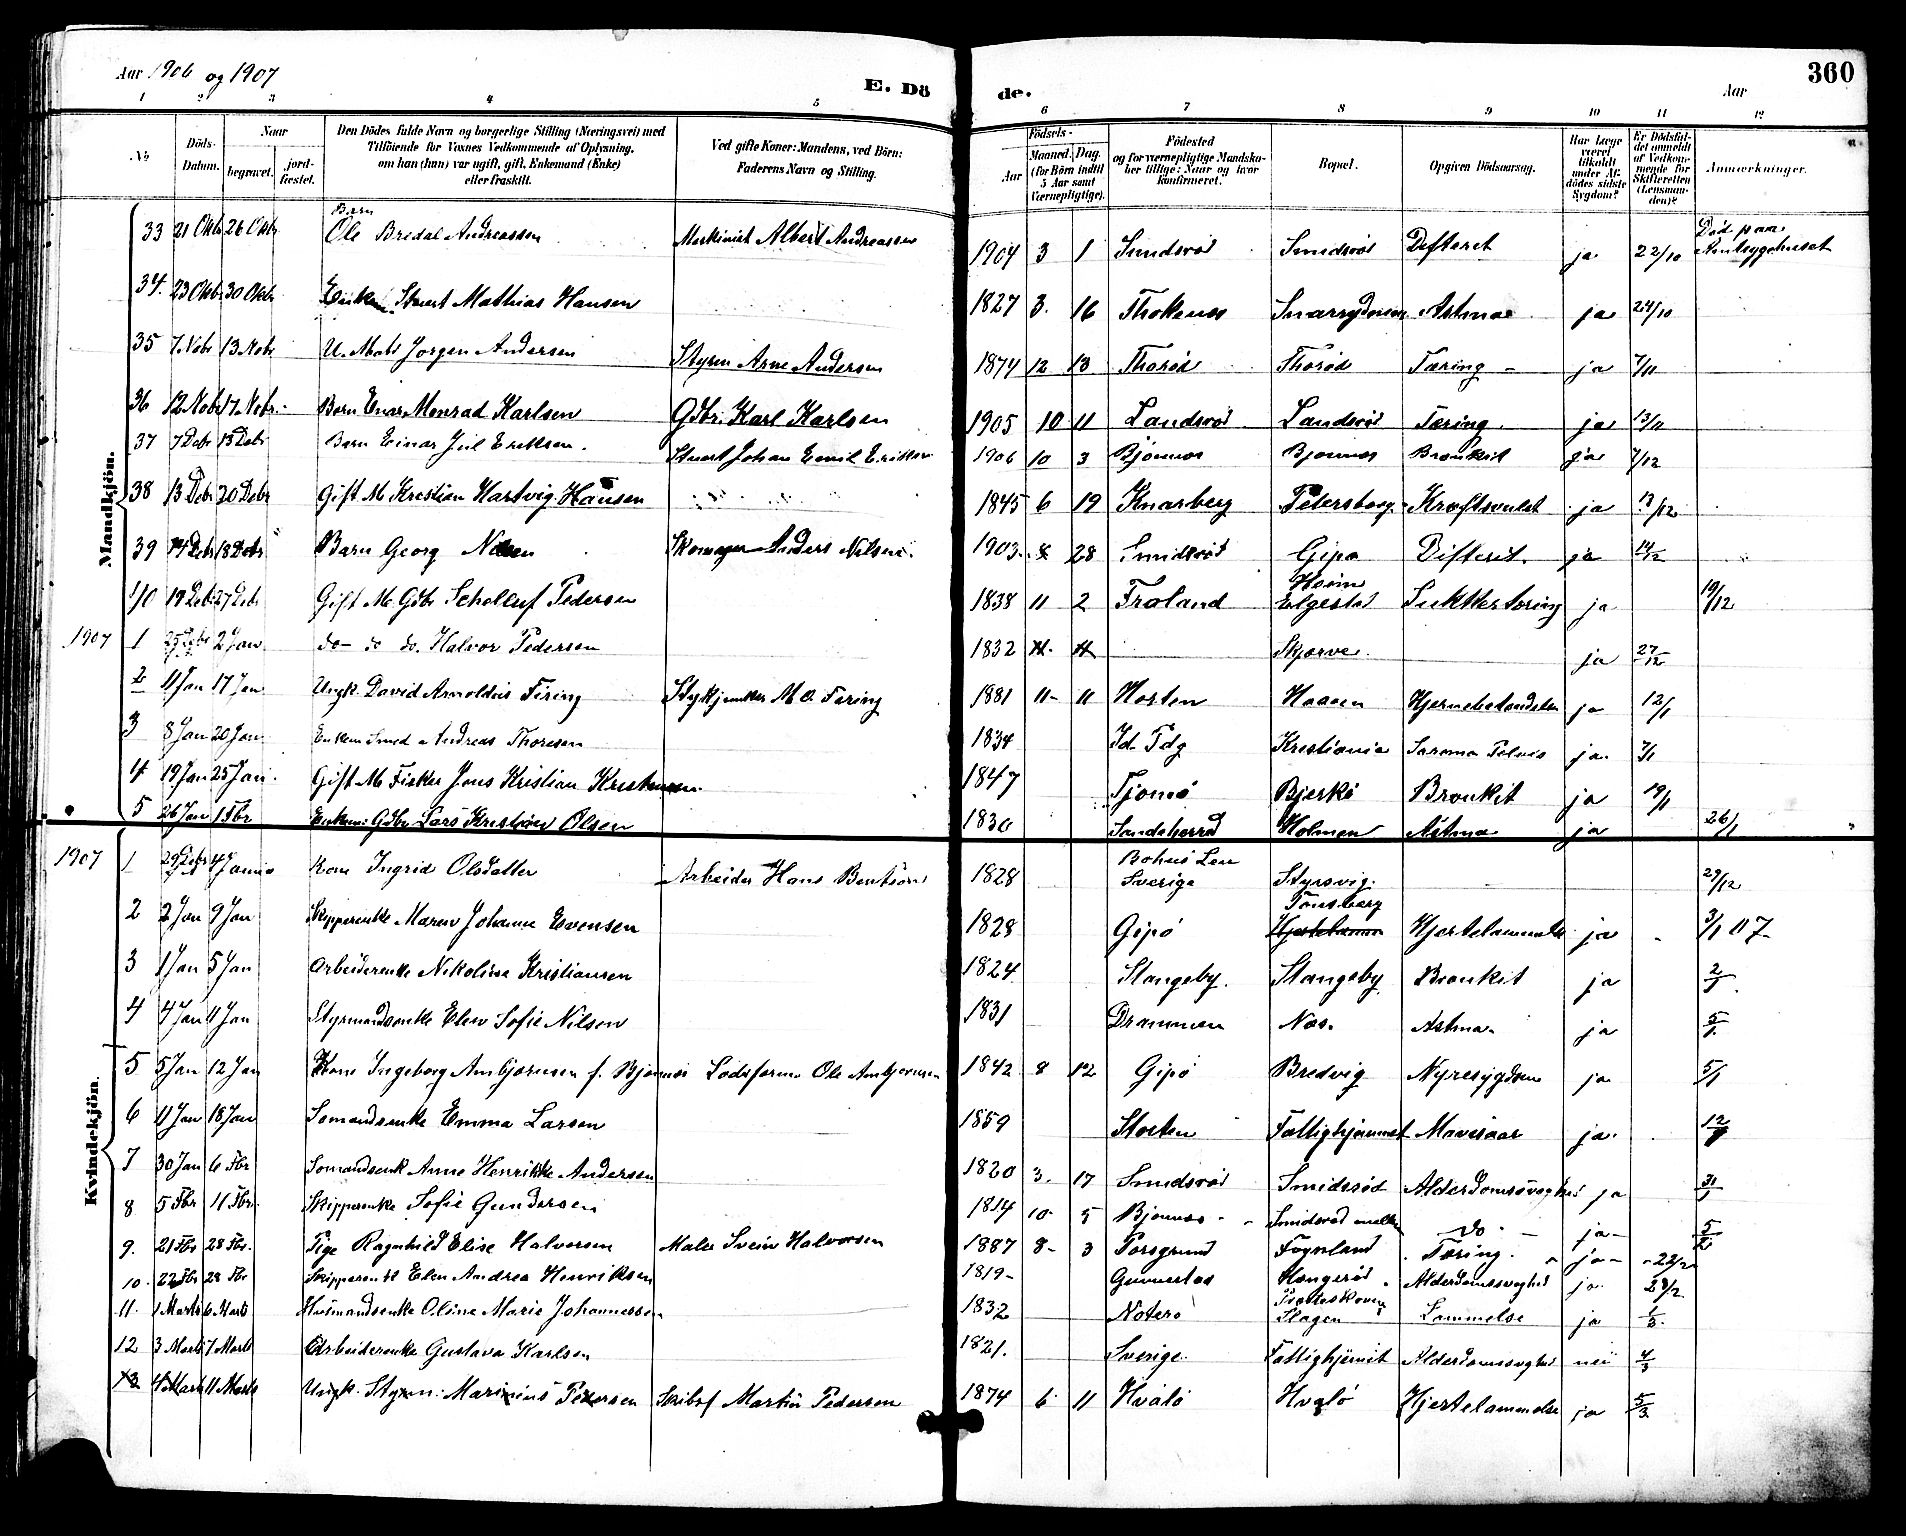 Aar 1906 og 1907
E. Dö de.
Aar
360
1 2 3 4 5 6 7 8 9 10 11 12
No
Döds-Datum.
Naar
begravet.
jord-fæstet.
Den Dödes fulde Navn og borgerlige Stilling (Næringsvei) med Tilföiende for Voxnes Vedkommende af Oplysning, om han (hun) var ugift, gift, Enkemand (Enke) eller fraskilt.
Ved gifte Koner: Mandens, ved Börn: Faderens Navn og Stilling.
Födsels-
Aar
Maaned. Dag.
(for Börn indtil 5 Aar samt Værnepligtige).
Födested
og for værnepligtige Mandska-ber tillige: Naar og hvor konfirmeret.
Bopæl.
Opgiven Dödsaarsag.
Har Læge været tilkaldt under Af-dödes sidste Sygdom?
Er Dödsfal-det anmeldt af Vedkom-mende for Skifteretten (Lensman-den)?
Anmærkninger.
Mandkjön.
33 21 Okbr 26 Okbr Barn Ole Bredal Andreassen Maskinist Albert Andreassen 1904 3 1 Smidsrød Smidsrød Difterit ja 22/10 Død paa Amtsygehuset
34. 23 Okbr 30 Okbr Enkem. Stuert Mathias Hansen 1827 3. 16 Thokenes Astma ja 24/10
35 7 Nobr 13 Nobr U. Mats Jorgen Andersen Styrm Arne Andersen 1874 12 13 Thorød Thorød Tæring - ja 7/11
36 12 Nobr 17 Nobr. Barn Einar Monrad Karlsen Gdbr. Karl Karlsen 1905 10 11 Landsrød Landsrød Tæring. ja 13/11
37 7 Debr 13 Debr Barn Einar Juel Eriksen. Stuert Johan Emil Eriksen 1906 10 3 Bjønnes Bjønnes Bronkit ja 7/12
38 13 Debr 20 Debr Gift M Kristian Hartvig Hansen 1845 6 19 Knarberg Petersborg Kræftsvulst ja 13/12
39 14 Debr 18 Debr Barn Georg Nilsen Skomager Anders Nilsen 1903. 28 Smidsrød Gipø Difterit. ja 14/12
40 19 Debr 27 Debr Gift M. Gdbr Pedersen 1838 11 2 Froland Elgestad Sukkertæring ja 19/12
1907 1 25 Debr 2 Jan do- do do. Halvor Pedersen 1832 Skjærve. ja 27/12
2 11 Jan 17 Jan Ungk. David Arnoldus Firing M O. Firing 1881 11- 11 Horten Haaen ja 12/1
3 8 Jan 20 Jan. Enkem Smed Andreas Thoresen 1834 Id. Pdg Kristiania ja. 7/1
4 19 Jan 25 Jan. Gift M Fisker Jens Kristian Kristensen 1847 Tjømø Bjerkø Bronkit ja 19/1
5 26 Jan 1 Fbr Enkem: Gdbr Lars Kristian Olsen 1830 Sandeherred Holmen Astma ja 26/1
Kvindekjön.
1907 1 29 Debr 4 Janua Kone Ingrid Olsdatter Arbeider Hans Bentson 1828 Bohus Len Sverige Styrsvig. 29/12
2 2 Jan 9 Jan Skipperenke Maren Johanne Evensen 1828 Gipø Tønsberg Hjertelammelse ja 3/1 07-
3 1 Jan 5 Jan Arbeiderenke Nikoline Kristiansen 1824 Stangeby. Stangeby Bronkit ja 2/1
4 4 Jan 11 Jan Styrmandsenke Elen Sofie Nilsen 1831 Drammen Næs. Astma. ja 5/1.
5 5 Jan 12 Jan Kone Ingeborg Ambjørnsen f. Bjønnes Lodsforma Ole Ambjørnsen 1842 8 12 Gipø Bredvig Nyresygdom ja 5/1
6 11 Jan 18 Jan Sømandsenke Emma Larsen 1859 Horten Fattighjemmet Mavesaar ja. 12/1
7 30 Jan 6 Fbr Sømandsenk Anne Henrikke Andersen 1820 3. 17 Smidsrød Smidsrød Alderdomssvaghed ja 31/1
8 5 Fbr 11 Fbr. Skipperenke Sofie Gundersen 1814 10. 5 Bjønnes - Smidsrød mellem Do - ja- 5/2
9. 21 Fbr 28 Fbr. Pige Ragnhild Elise Halvorsen Maler Svein Halvorsen 1887 8- 3 Porsgrund Føynland Tæring. ja- 22/2
10. 22 Fbr 28 Fbr Skipperenke Elen Andrea Henriksen 1819- Gunnestad Hængerød Alderdomssvaghed ja. 23/2
11. 1 Marts 6 Marts Husmandsenke Oline Marie Johannessen 1832 Nøterø Slagen Lammelse ja 1/3.
12 3 Marts 7 Marts Arbeiderenke Gustava Karlsen 1821. Sverige. Fattighjemmet Alderdomssvaghed nei 4/3
13 4 Marts 11 Marts Ungk. Styrm. Marinius Pedersen Skibsf Martin Pedersen 1874 6. 11 Hvalø Hvalø Hjertelammelse ja 5/3.